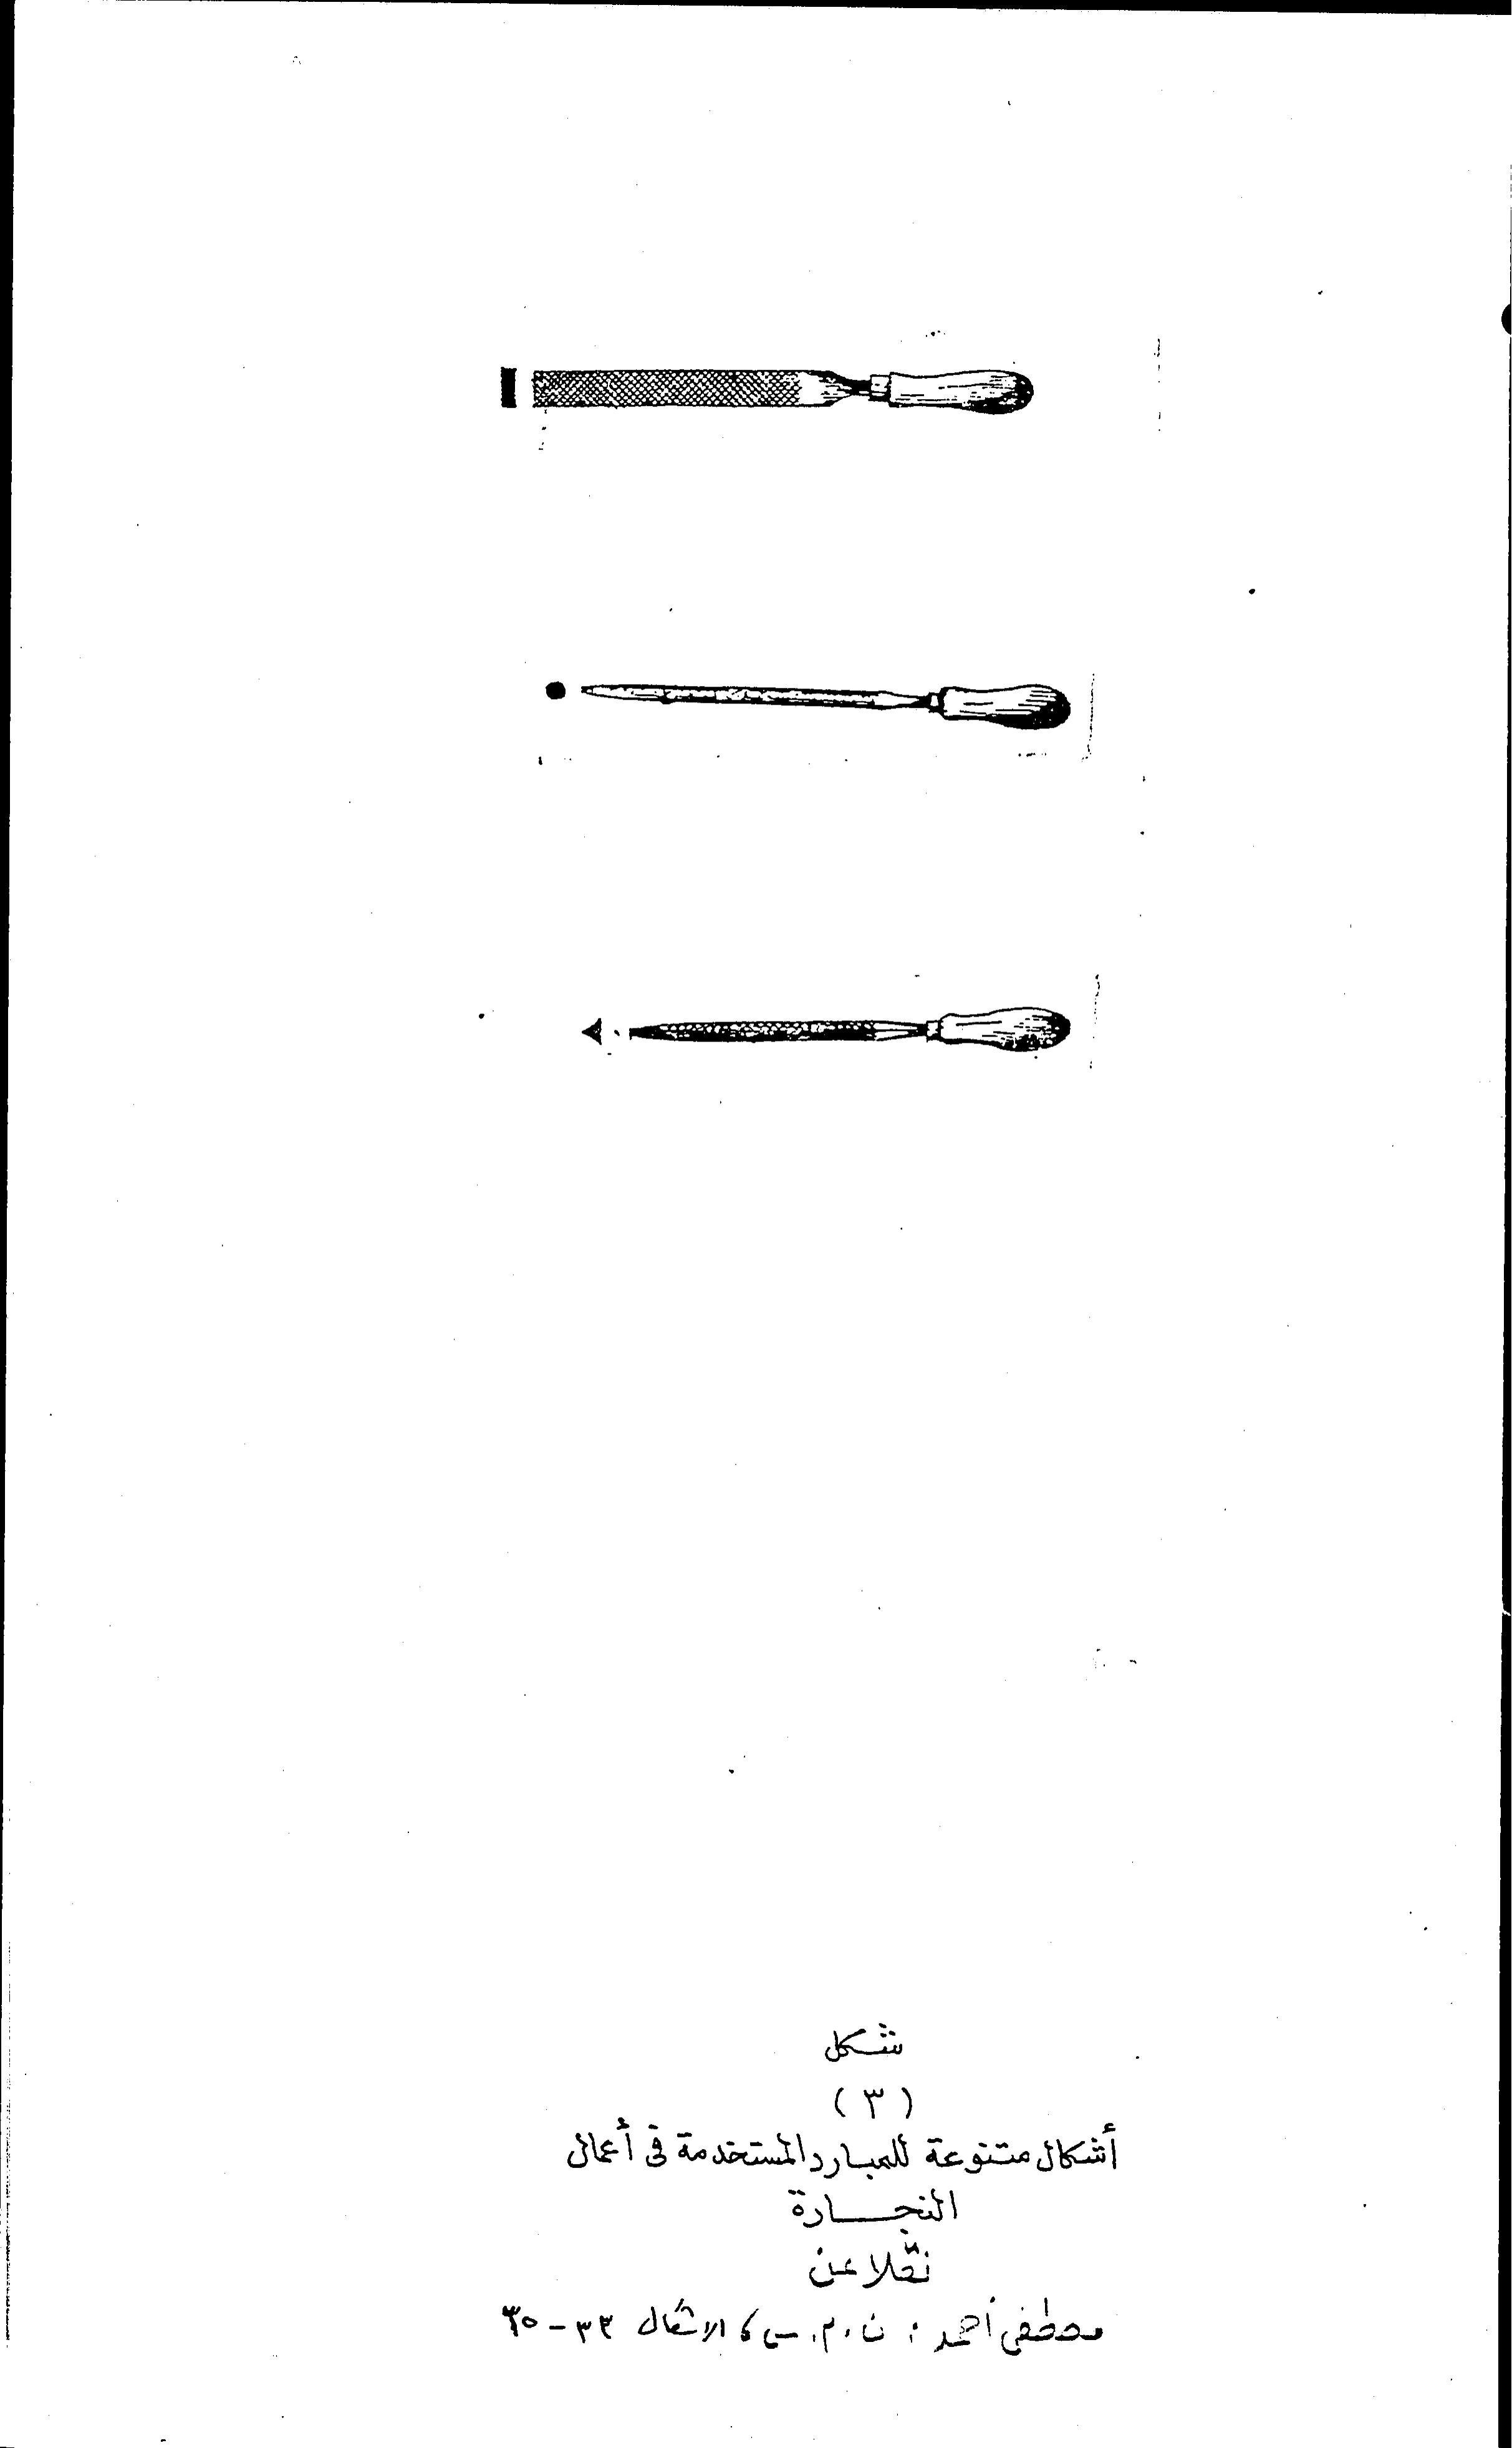 شكل
(٣)
أشكال متنوعة للمبارد المستخدمة فى أعمال
النجــارة
نقلا عن
مصطفى أحمد : ن . م . س ، الاشكال ٣٣ - ٣٥